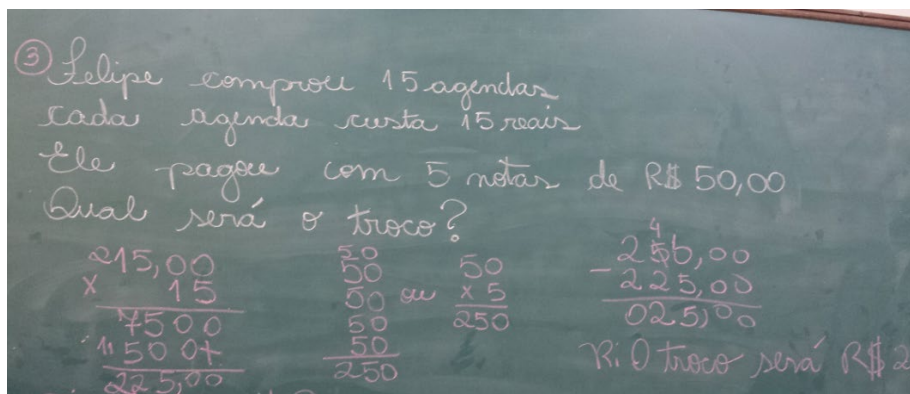 ③ Felipe comprou 15 agendas
cada agenda custa 15 reais
Ele pagou com 5 notas de R$ 50,00
Qual será o troco?
²15,00
x 15
7500
¹¹500+
225,00
50
50
50
50
50
250
ou
50
x 5
250
4
250,00
- 225,00
025,00
R: O troco será R$ 2